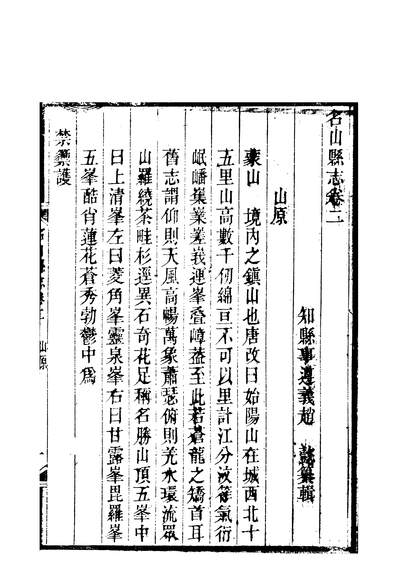 名山縣志卷二
知縣事遵義趙 懿纂輯
山原
蒙山 境內之鎮山也唐改曰始陽山在城西北十
五里山高數千仞綿亘不可以里計江分沫 氣衍
岷嶓巢業差峩運峯叠嶂葢至此若蒼龍之矯首耳
舊志謂仰則天風高暢萬象蕭瑟俯則羌水環流眾
山羅繞茶畦杉逕異石奇花足稱名勝山頂五峯中
曰上清峯左曰菱角峯靈泉峯右曰甘露峯毘羅峯
五峯酷肖蓮花蒼秀勃鬱中為
禁籞護
名山縣志卷二
山原
一